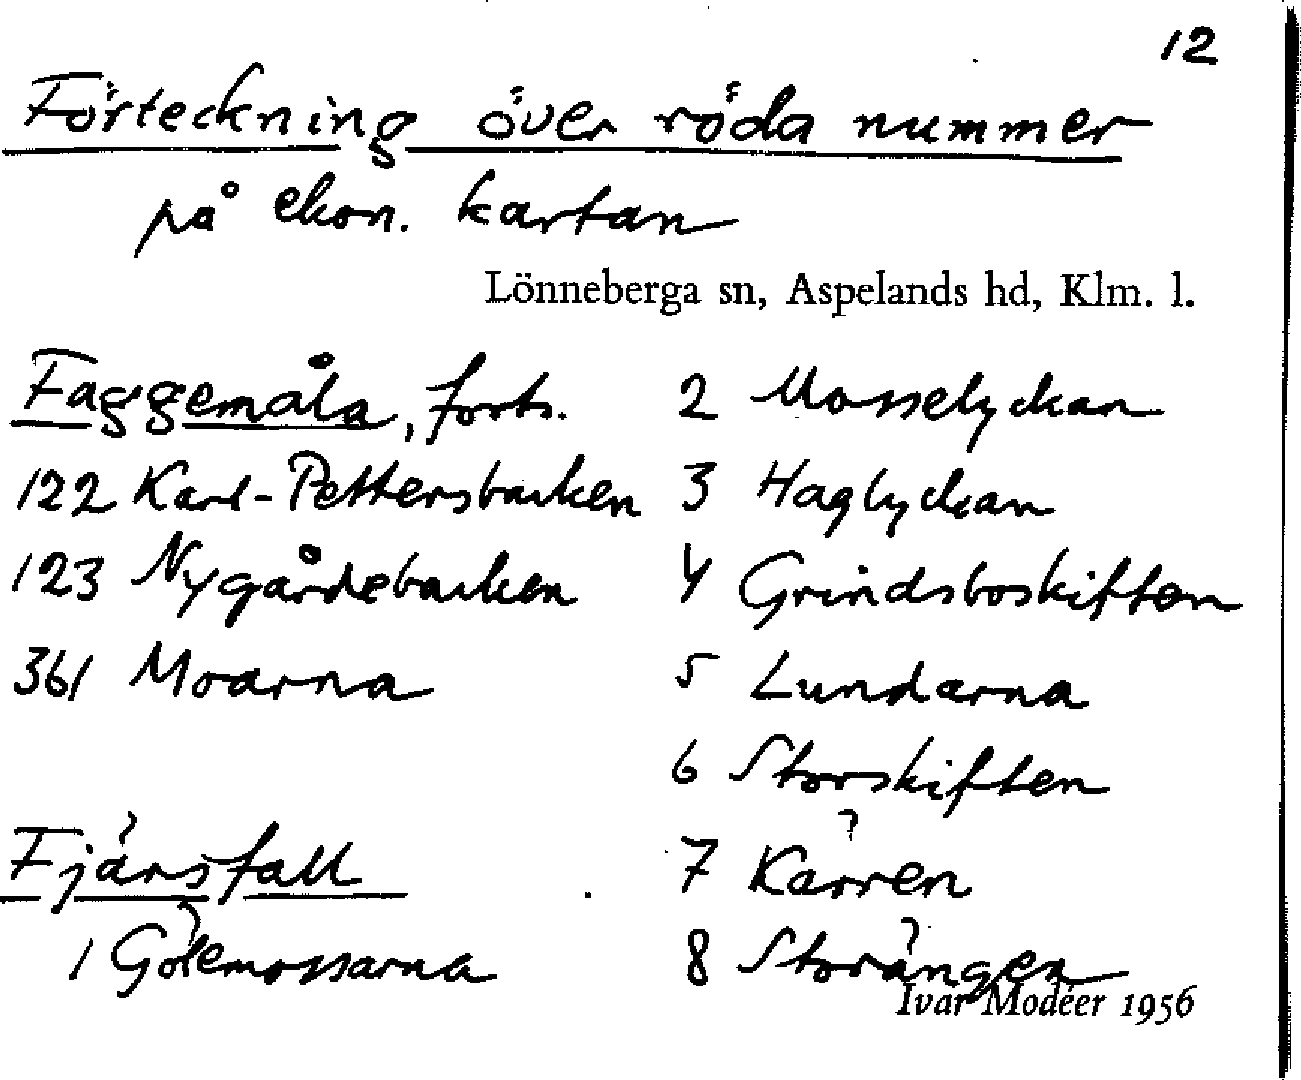 12
Förteckning över röda nummer
på ekon. kartan
Lönneberga sn, Aspelands hd, Klm. l.
Faggemåla, forts.
122 Karl-Pettersbacken
123 Nygårdebacken
361 Moarna
Fjärsfall
1 Gölemossarna
2 Mosselyckan
3 Haglyckan
4 Grindsboskiften
5 Lundarna
6 Storskiften
7 Kärren
8 Storängen
Ivar Modéer 1956